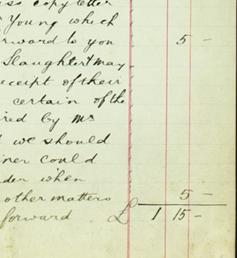 ss copy letter
Young which
rward to you 5 –
Slaughter may
eceipt of their
certain of the
ired by Mr
we should
iner could
der when
other matters 5 –
forward £ 1 15 –